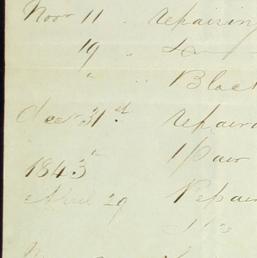 Nov 11 " repairing
19 "
" " Black
Dec 31st repairi
1 Pair
1843
April 29 Repair